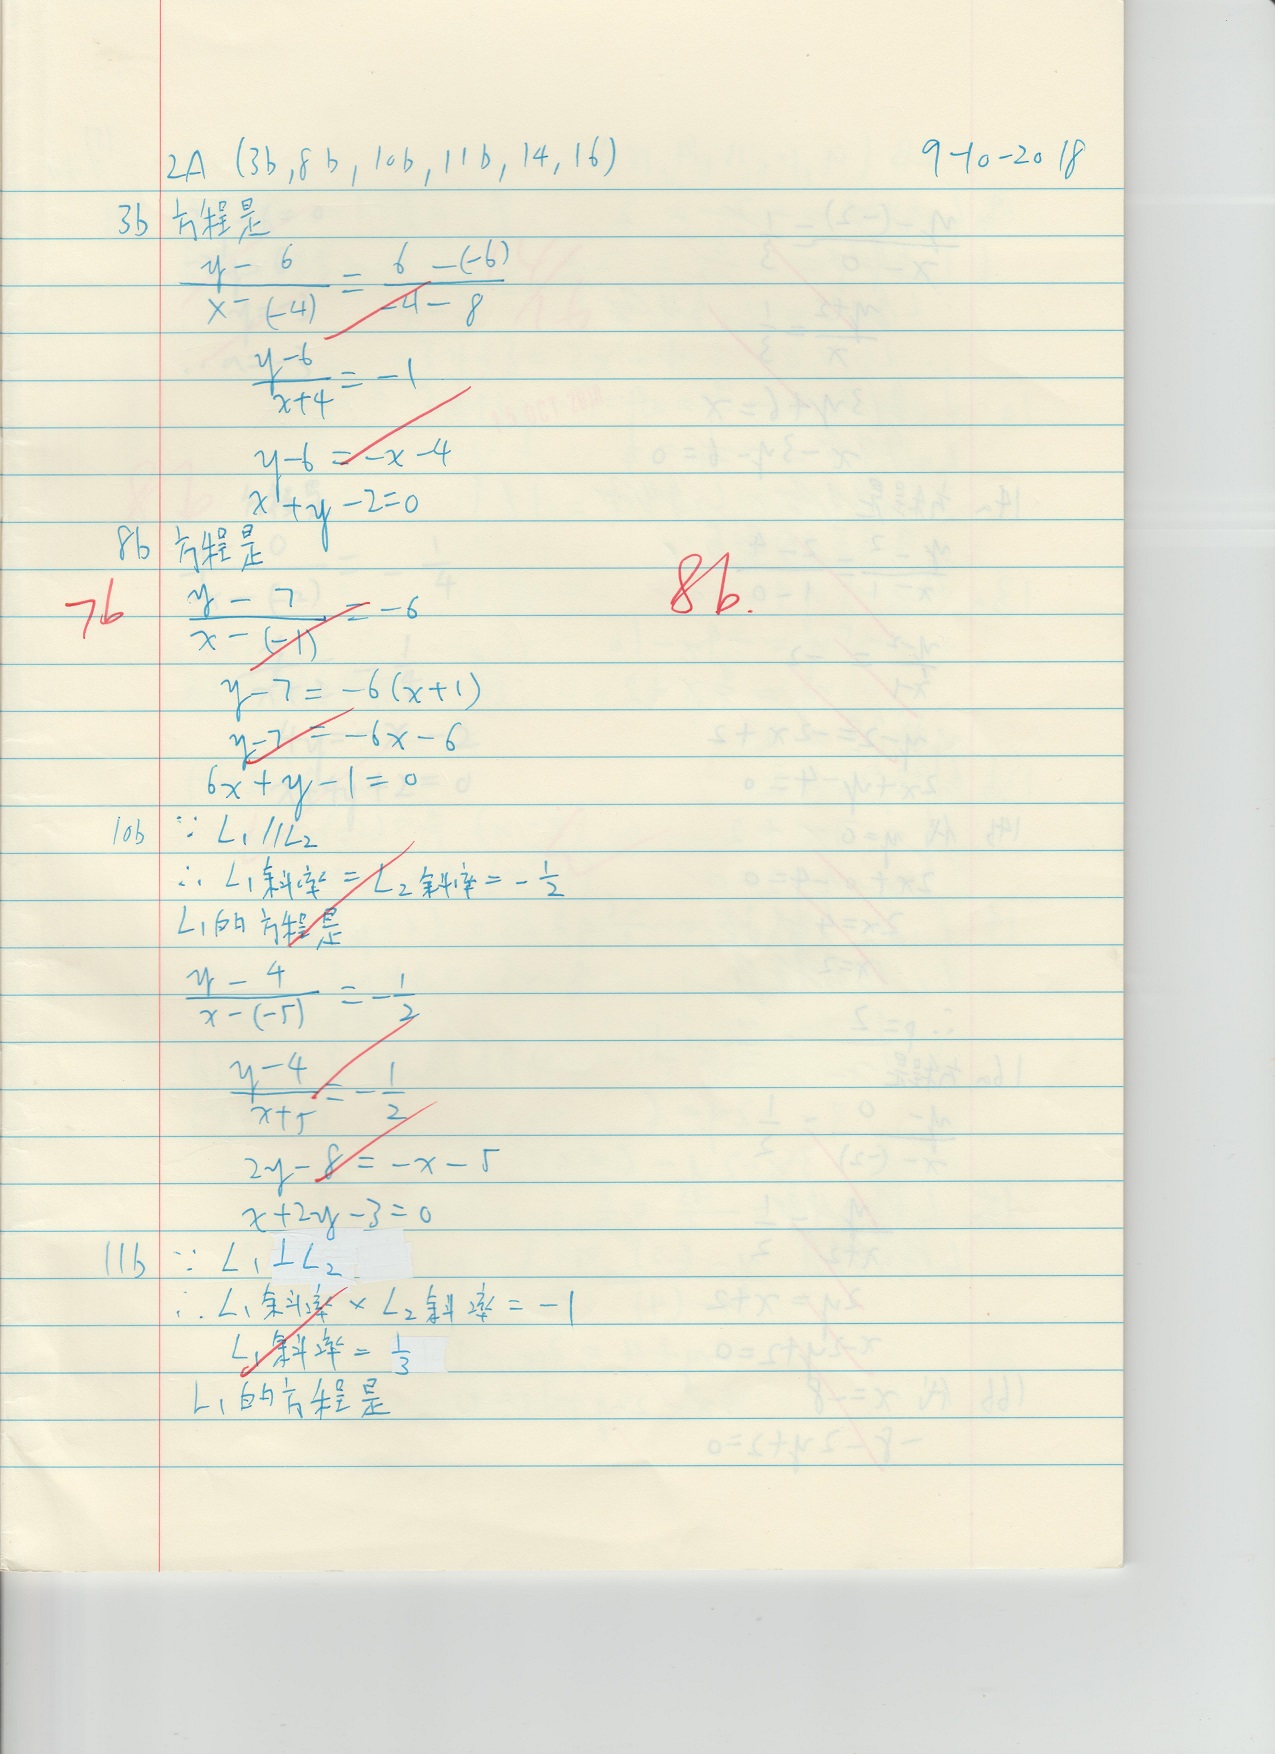 2A (3b, 8b, 10b, 11b, 14, 16) 9-10-2018
3b 方程是
(y - 6)/(x - (-4)) = (6 - (-6))/(-4 - 8)
(y-6)/(x+4) = -1
y-6 = -x-4
x+y-2=0
8b 方程是
7b (y - 7)/(x - (-1)) = -6 8b.
y-7 = -6(x+1)
y-7 = -6x-6
6x+y-1=0
10b ∵ L₁//L₂
∴ L₁斜率 = L₂斜率 = -1/2
L₁的方程是
(y - 4)/(x-(-5)) = -1/2
(y-4)/(x+5) = -1/2
2y-8 = -x-5
x+2y-3=0
11b ∵ L₁⊥L₂
∴ L₁斜率 × L₂斜率 = -1
L₁斜率 = 1/3
L₁的方程是